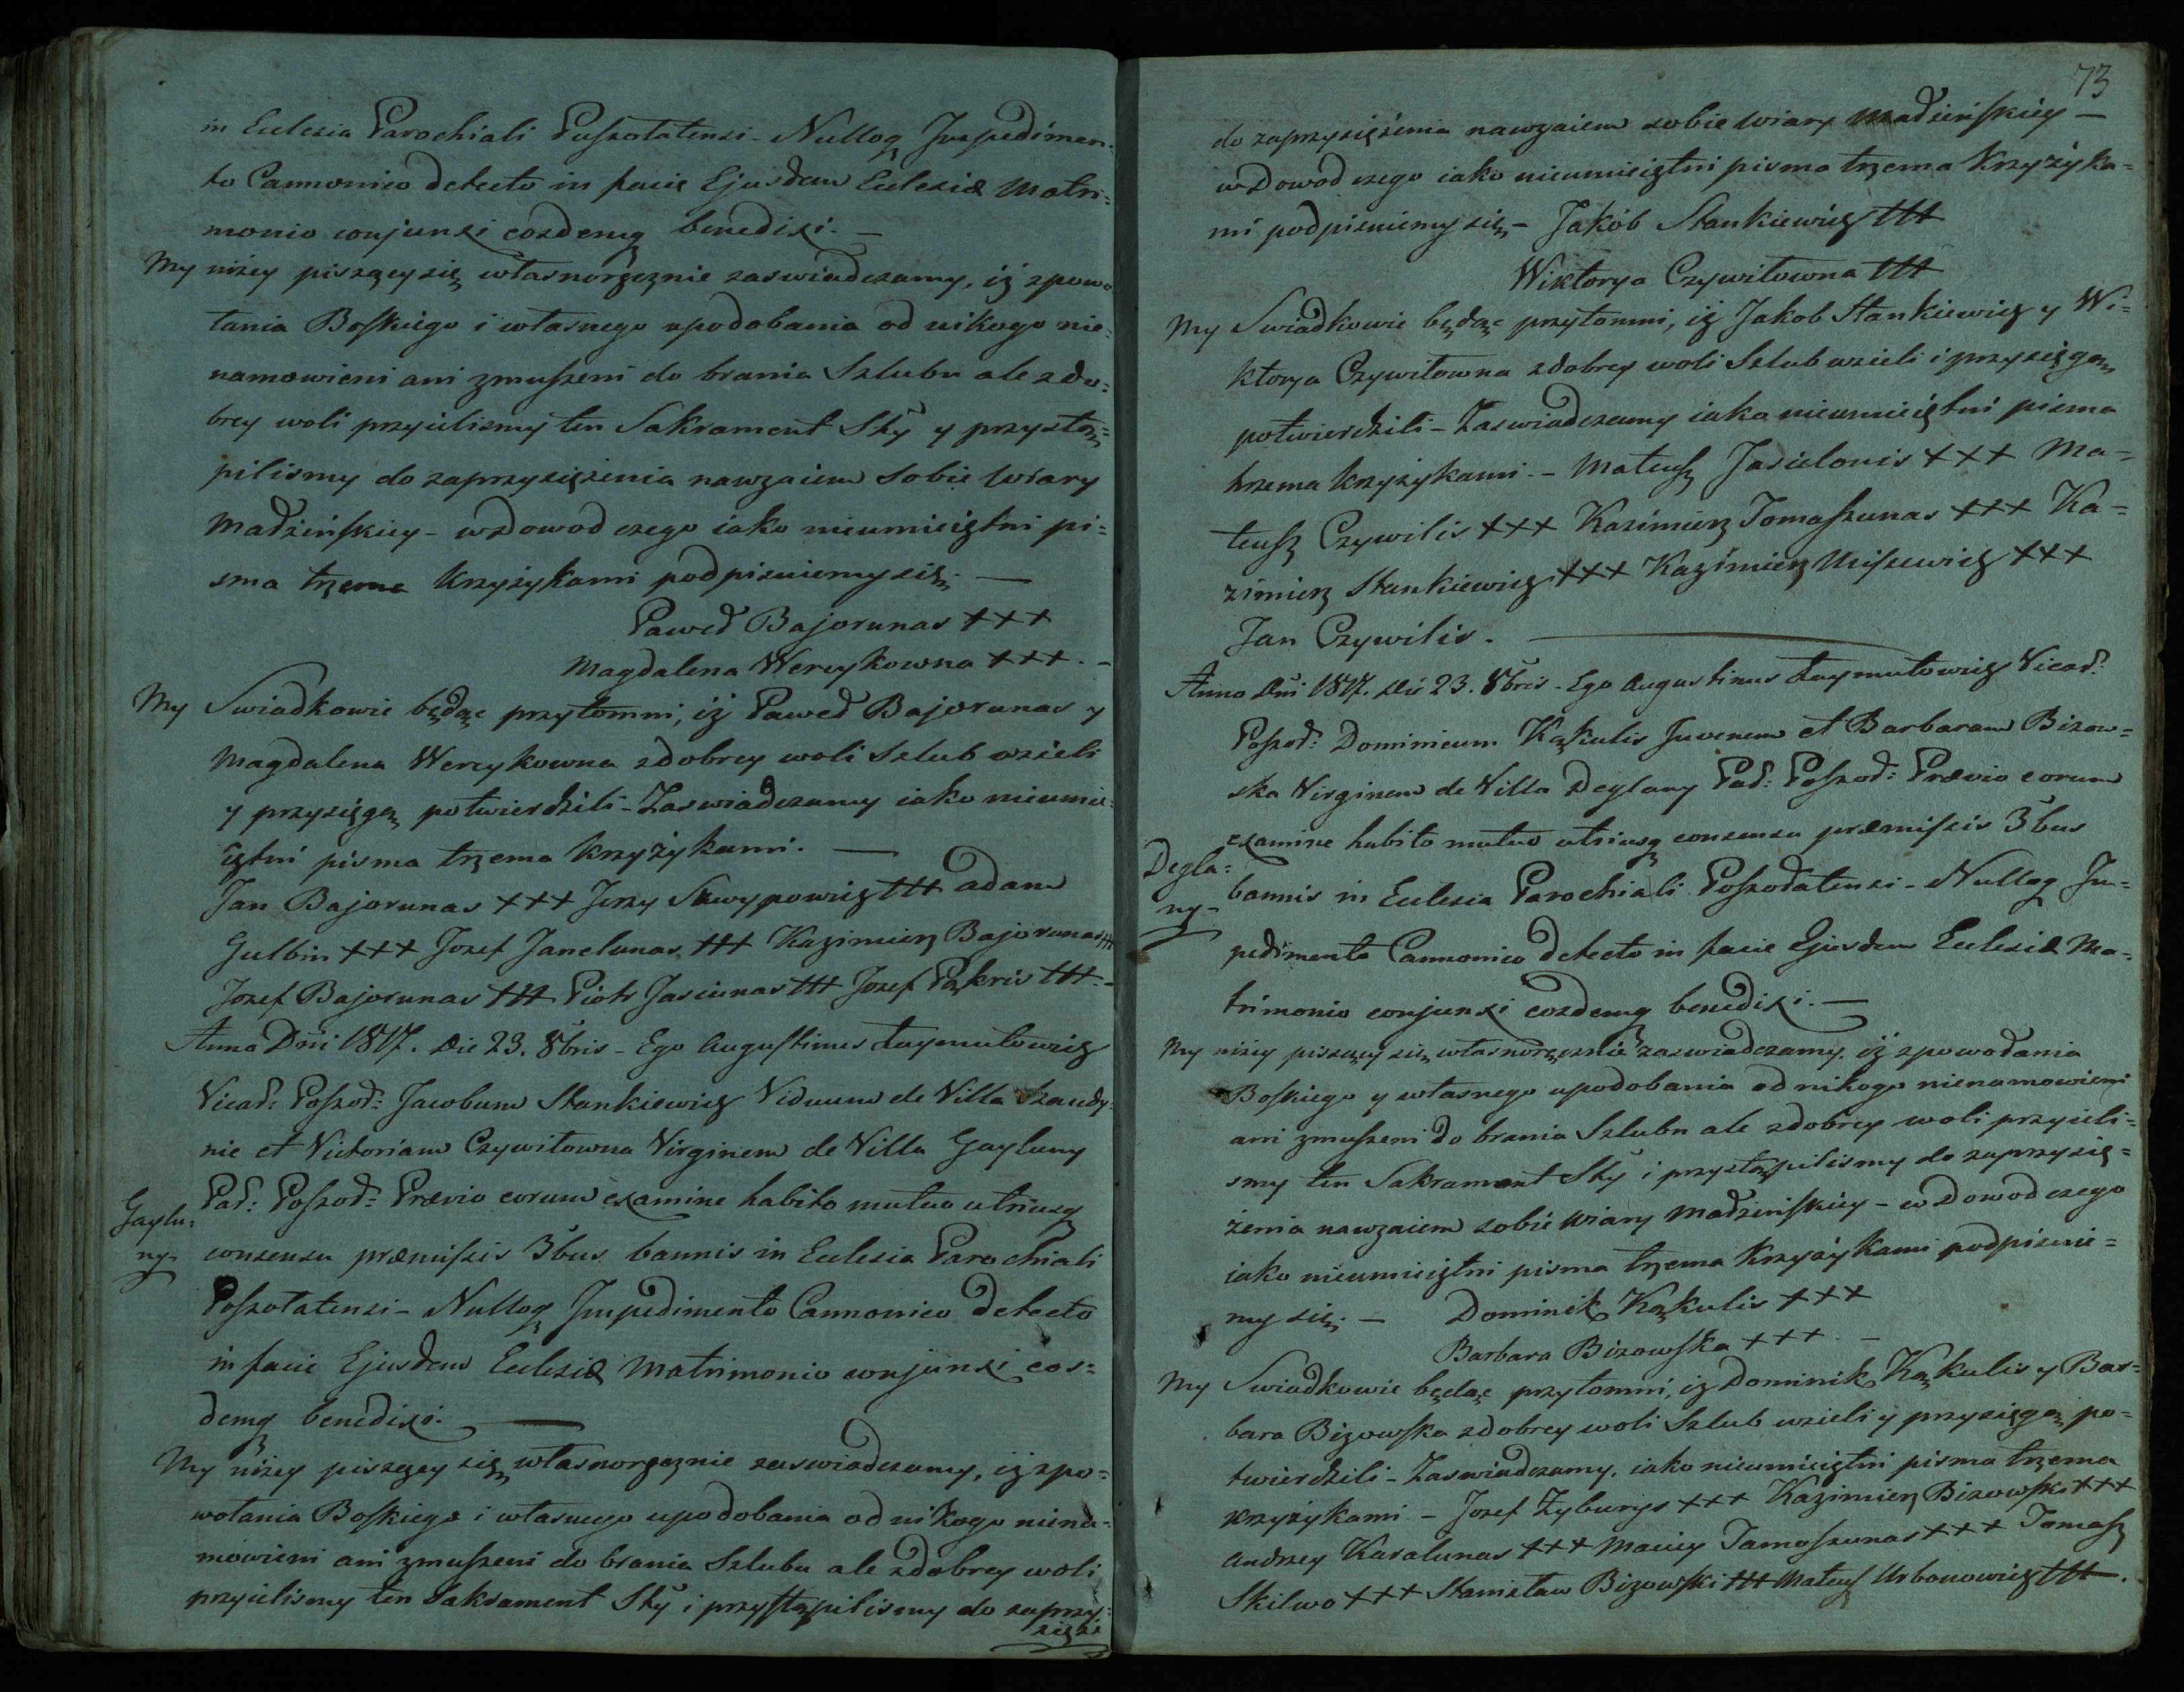 in Eulesia Parochiali Puszołatensi - Nulloq Impedimen=
to Cannonico detecto in facie Ejusdem Eulesiæ Matri=
monio conjunxi eosdemq benedixi. -
My niżey piszący się własnorgcznie zaswiadczamy, iż zpowo
łania Boskiego i własnego upodobania od nikogo nie=
namowieni ani zmuszeni do brania Szlubu ale zdo=
brey woli przyielismy ten Sakrament Sty y przystą=
pilismy do zaprzysiężenia nawzaiem sobie Wiary
Małżeńskiey - wdowod czego iako nieumieiętni pi=
sma trzema krzyżykami podpisuiemy się. -
Paweł Bajorunas +++
Magdalena Wereykowna +++. -
My Swiadkowie będąc przytomni, iż Paweł Bajorunas y
Magdalena Wereykowna zdobrey woli Szlub wzieli
y przysięgą potwierdzili - Zaswiadczamy iako nieumie=
iętni pisma trzema krzyżykami. -
Jan Bajorunas +++ Jerzy Skwypowicz +++ Adam
Gulbin +++ Jozef Janelunas +++ Kazimierz Bajorunas +++
Jozef Bajorunas +++ Piotr Jasiunas +++ Jozef Pąkris +++. -
Anno Dni 1817. Die 23. 8bris - Ego Augustinus Łaymutowicz
Vicař: Poszoł: Jacobum Stankiewicz Viduum de Villa Szaudy=
nie et Victoriam Czywitowna Virginem de Villa Gayluny
Gaylu=
ny -
Pař: Poszoł: Prævio eorum examine habito mutuo utriusq
consensu præmiszis 3bus bannis in Eulesia Parochiali
Poszołatensi - Nulloq Impedimento Cannonico detecto
in facie Ejusdem Eulesiæ Matrimonio conjunxi eos=
demq benedixi. -
My niżey piszący się własnorgcznie zaswiadczamy, iż zpo=
wołania Boskiego i własnego upodobania od nikogo niena=
mowieni ani zmuszeni do brania Szlubu ale zdobrey woli
przyielismy ten Sakrament Sty i przystąpilismy do zaprzy=
sięże
73
do zaprzysiężenia nawzaiem sobie Wiary Małżeńskiey -
wdowod czego iako nieumieiętni pisma trzema krzyżyka=
mi podpisuiemy się - Jakób Stankiewicz +++
Wiktorya Czywitowna +++
My Swiadkowie będąc przytomni, iż Jakob Stankiewicz y Wi=
ktorya Czywitowna zdobrey woli Szlub wzieli i przysięgą
potwierdzili - Zaswiadczamy iako nieumieiętni pisma
trzema krzyżykami. - Mateusz Jasielonis +++ Ma=
teusz Czywilis +++ Kazimierz Tomaszunas +++ Ka=
zimierz Stankiewicz +++ Kazimierz Misiewicz +++
Jan Czywilis. -
Anno Dni 1817. Die 23. 8bris - Ego Augustinus Łaymutowicz Vicař:
Poszoł: Dominicum Kąkulis Juvenem et Barbaram Bizow=
ska Virginem de Villa Deglany Pař: Poszoł: Prævio eorum
examine habito mutuo utriusq consensu præmiszis 3bus
Degla=
ny -
bannis in Eulesia Parochiali Poszołatensi - Nulloq Im=
pedimento Cannonico detecto in facie Ejusdem Eulesiæ Ma=
trimonio conjunxi eosdemq benedixi. -
My niżey piszący się własnoręcznie zaswiadczamy, iż zpowołania
Boskiego y własnego upodobania od nikogo nienamowieni
ani zmuszeni do brania Szlubu ale zdobrey woli przyieli=
smy ten Sakrament Sty i przystąpilismy do zaprzysię=
żenia nawzaiem sobie Wiary Małżeńskiey - w Dowod czego
iako nieumieiętni pisma trzema krzyżykami podpisuie=
my się. - Dominik Kąkulis +++
Barbara Bizowska +++. -
My Swiadkowie będąc przytomni, iż Dominik Kąkulis y Bar=
bara Bizowska zdobrey woli Szlub wzieli y przysięgą po=
twierdzili - Zaswiadczamy, iako nieumieiętni pisma trzema
krzyżykami - Jozef Zyburys +++ Kazimierz Bizowski +++
Andrzey Karalunas +++ Maciey Tamoszunas +++ Tomasz
Skilwo +++ Stanisław Bizowski +++ Mateusz Urbonowicz +++.